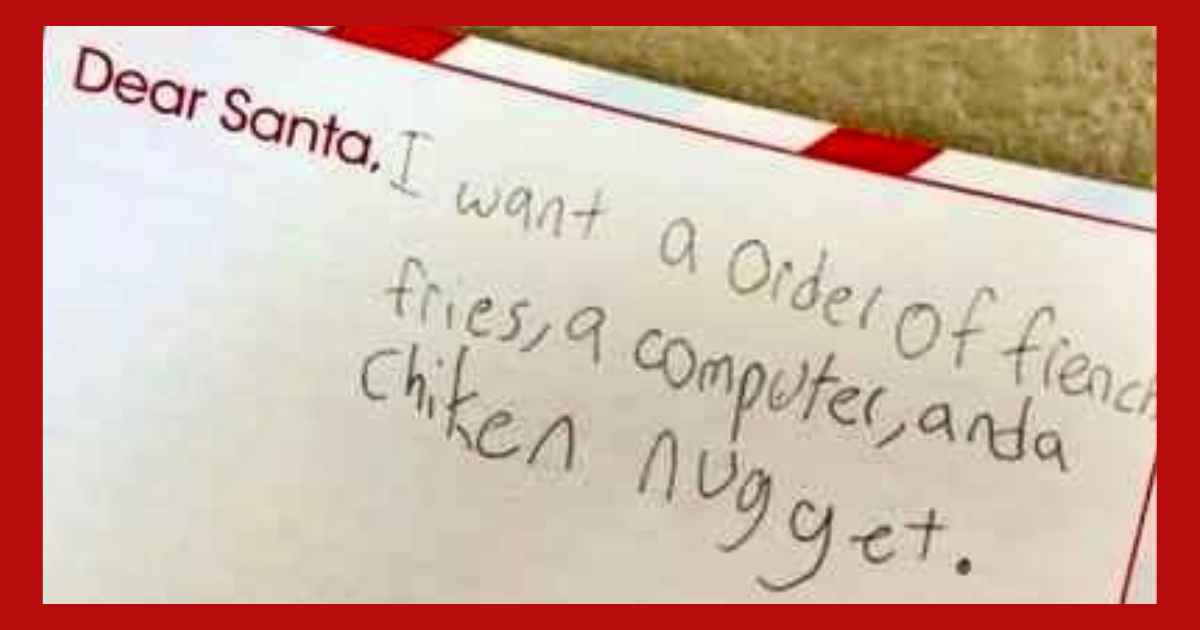 Dear Santa, I want a order of fiench
fries, a computer, and a
chiken nugget.